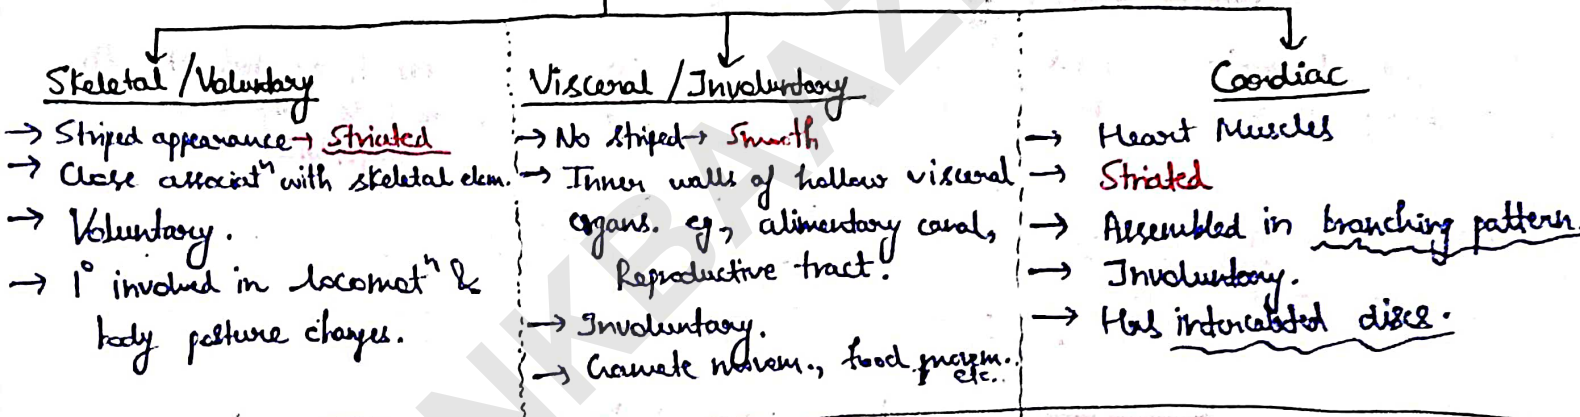 Skeletal / Voluntary
→ Striped appearance → Striated
→ Close associatⁿ with skeletal elem.
→ Voluntary.
→ 1° involved in locomotⁿ &
body posture changes.
Visceral / Involuntary
→ No striped → Smooth
→ Inner walls of hollow visceral
organs. eg, alimentary canal,
Reproductive tract.
→ Involuntary.
→ Gamete movem., food movem. etc..
Cardiac
→ Heart Muscles
→ Striated
→ Assembled in branching pattern.
→ Involuntary.
→ Has intercalated discs.
NKBAAZ